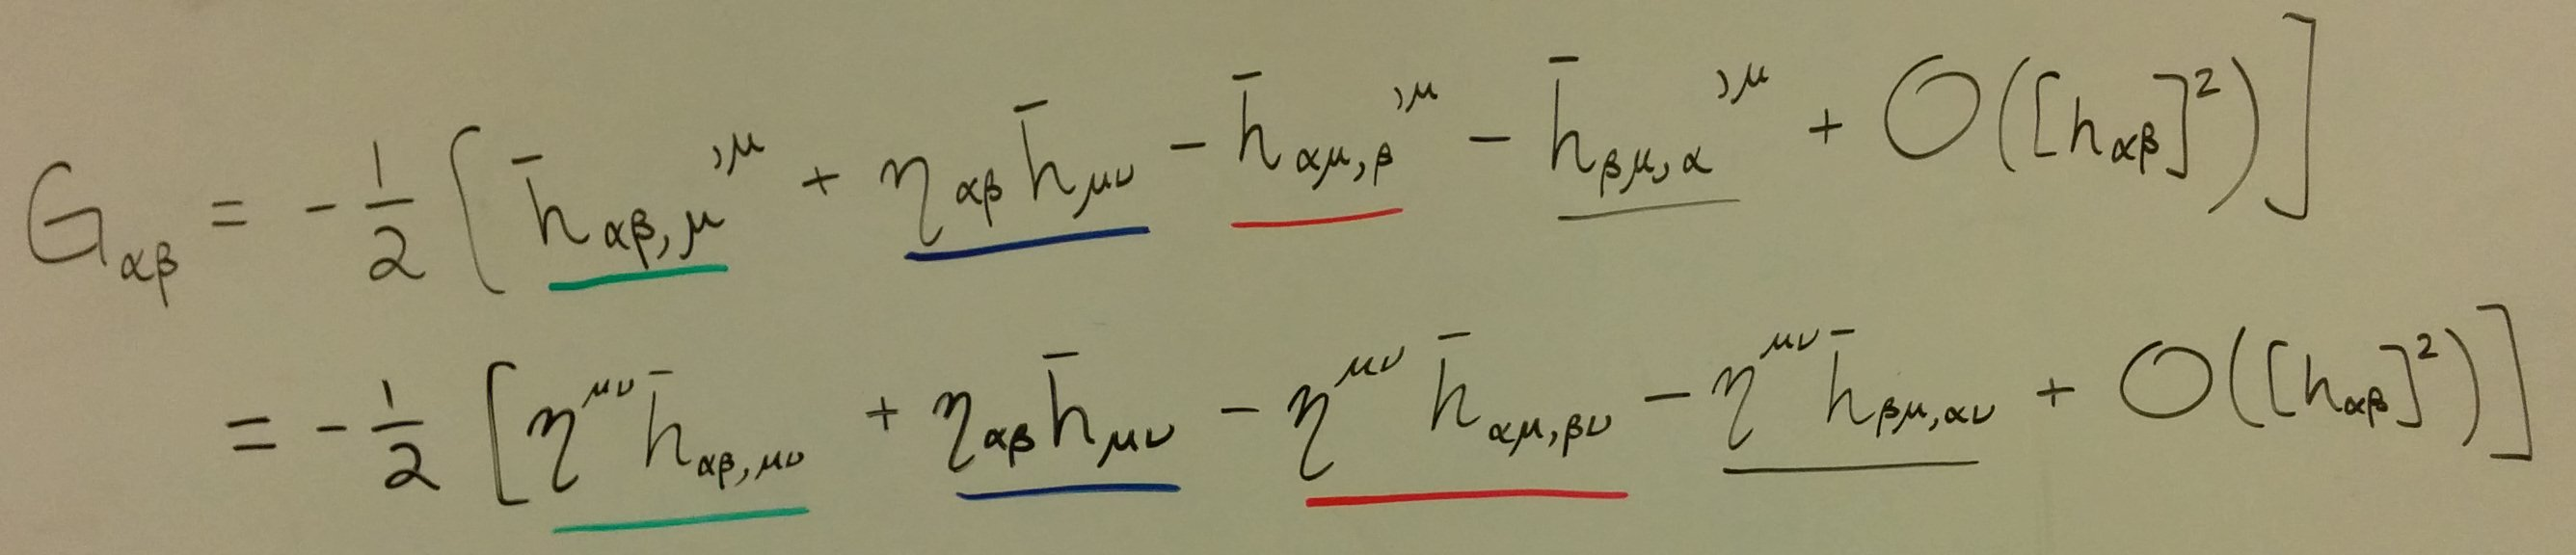 G_{αβ} = -\frac{1}{2} [ \bar{h}_{αβ,μ}^{,μ} + η_{αβ} \bar{h}_{μν} - \bar{h}_{αμ,β}^{,μ} - \bar{h}_{βμ,α}^{,μ} + O([h_{αβ}]^2) ]
= -\frac{1}{2} [ η^{μν} \bar{h}_{αβ,μν} + η_{αβ} \bar{h}_{μν} - η^{μν} \bar{h}_{αμ,βν} - η^{μν} \bar{h}_{βμ,αν} + O([h_{αβ}]^2) ]